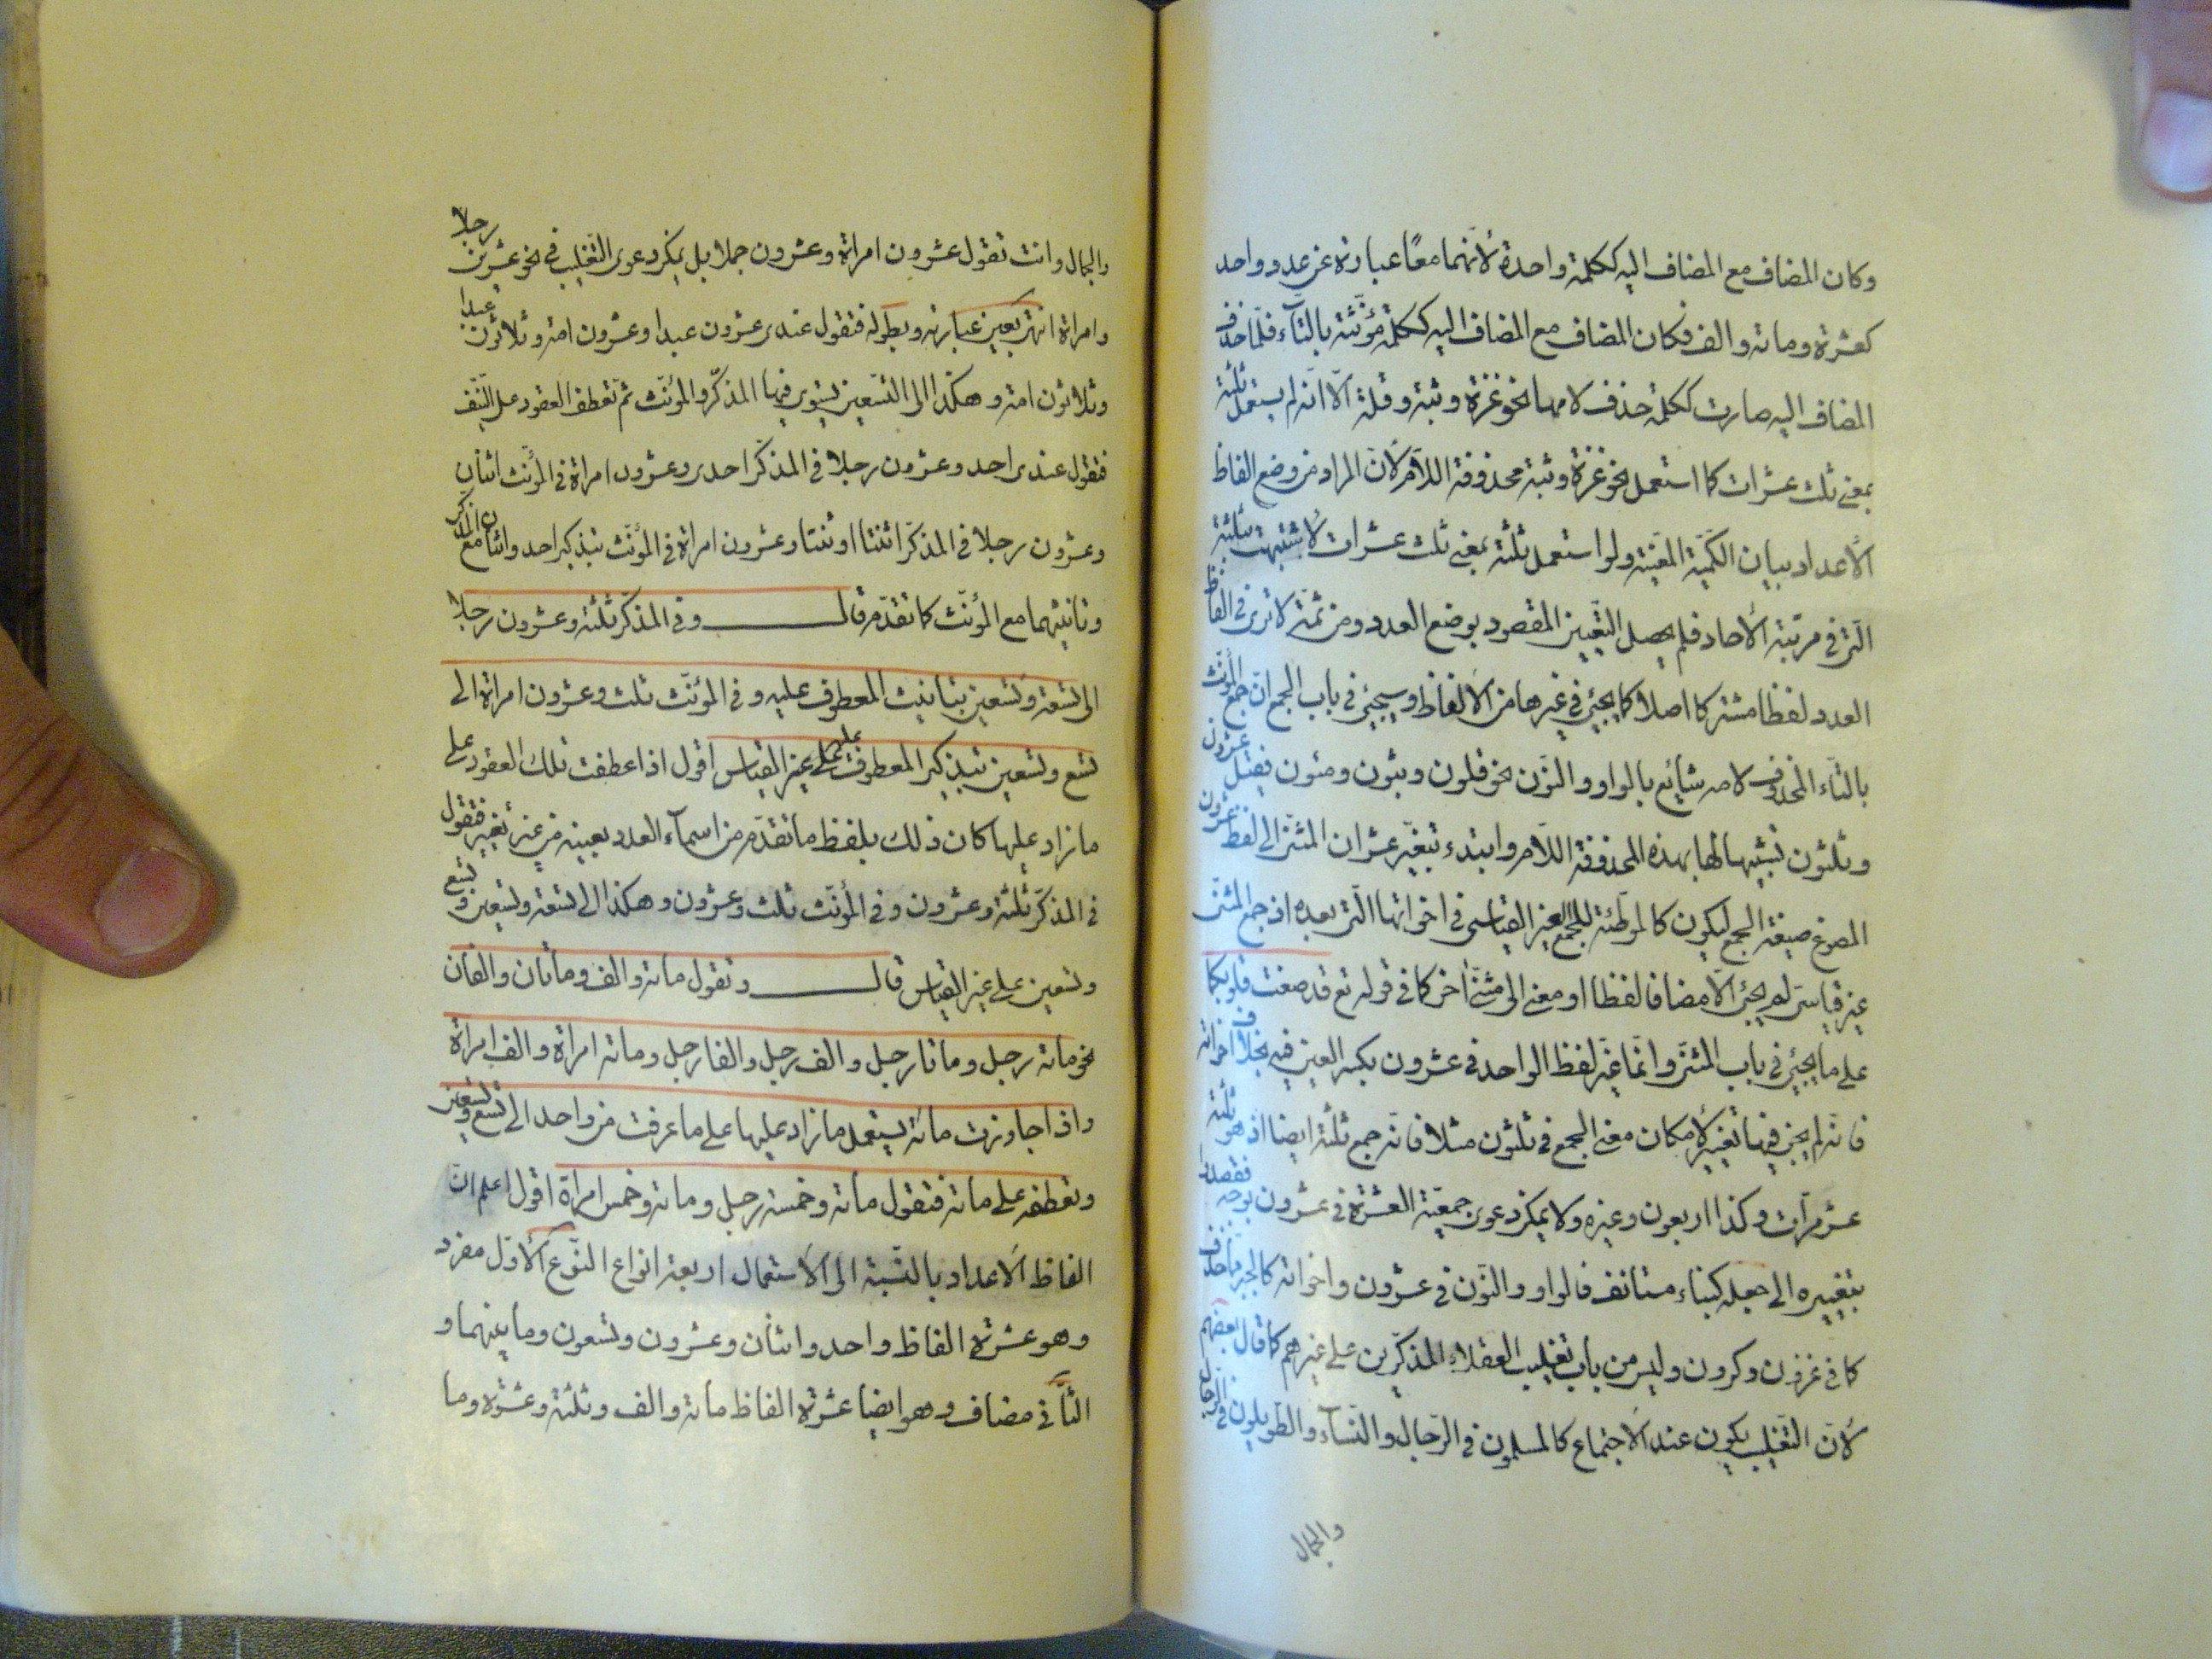 وكان المضاف مع المضاف اليه ككلمة واحدة لأنهما معًا عبارة عن عدد واحد
كعشرة ومائة والف فكان المضاف مع المضاف اليه ككلمة مؤنّثة بالتآء فلمّا حذف
المضاف اليه صارت ككلمة حذف لامها نحو عزة وثبة وقلة الّا انّه لم يستعمل ثلثة
بمعنى ثلث عشرات كما استعمل نحو عزة وثبة محذوفة اللّام لانّ المراد من وضع الفاظ
الأعداد بيان الكمّية المعّينة ولو استعمل ثلثة بمعنى ثلث عشرات لاشتبهت بثلثة
الّتى فى مرتبة الأحاد فلم يحصل التّعيين المقصود بوضع العدد ومن ثمّة لا ترى فى الفاظ
العدد لفظا مشتركا اصلا كما يجيئ فى غيرها من الألفاظ وسيجيئ فى باب الجمع انّ جمع المؤنّث
بالتّاء المحذوف لامه شايع بالواو والنّون نحو قلون وثبون ومئون فقيل عشرون
وثلثون تشبيها لها بهذه المحذوفة اللّام وابتدء بتغيّر عشران المثنّى الى لفظ عشرون
المصوغ صيغة الجمع ليكون كالموطّئة للجمع الغير القياسى فى اخواتها الّتى بعده اذ جمع المثنّى
غير قياسىّ لم يجيئ الّا مضافا لفظا او معنى الى مثنّى أخر كما فى قوله تع قد صغت قلوبكما
على ما يجيئ فى باب المثنّى وانّما غيّر لفظ الواحد فى عشرون بكسر العين فيه بخلاف اخواته
فانّه لم يجئ فيها تغيير لإمكان معنى الجمع فى ثلثون مثلا فانّه جمع ثلثة ايضا اذ هو ثلثة
عشر مرّات وكذا اربعون وغيره ولا يمكن دعوى جمعيّة العشرة فى عشرون بوجه فقصدوا
بتغييره الى جعله كبناء مستانف فالواو والنّون فى عشرون واخواته كالجبر ممّا حذف
كما فى عزون وكرون وليس من باب تغليب العقلاء المذكّرين على غيرهم كما قال بعضهم
لأنّ التّغليب يكون عند الاجتماع كالمسلمون فى الرّجال والنّسآء والطّويلون فى الرّجال
والجمال
والجمال وانت تقول عشرون امراة وعشرون جملا بل يمكن دعوى التّغليب فى نحو عشرين رجلا
وامراة انتهى بعين عبارته وبطوله فتقول عندى عشرون عبدا وعشرون امة وثلاثون عبدا
وثلاثون امة وهكذا الى التّسعين يستوى فيها المذكّر والمؤنّث ثمّ تعطف العقود على النّيف
فتقول عندى احد وعشرون رجلا فى المذكّر احدى وعشرون امراة فى المؤنّث اثنان
وعشرون رجلا فى المذكّر اثنتا او ثنتا وعشرون امراة فى المؤنّث بتذكير احد واثنان مع المذكّر
وتانيثهما مع المؤنّث كما تقدّم قال وفى المذكّر ثلثة وعشرون رجلا
الى تسعة وتسعين بتانيث المعطوف عليه وفى المؤنّث ثلث وعشرون امراة الى
تسع وتسعين بتذكير المعطوف عليه على غير القياس اقول اذا عطفت تلك العقود على
ما زاد عليها كان ذلك بلفظ ما تقدّم من اسمآء العدد بعينه من غير تغيير فتقول
فى المذكّر ثلثة وعشرون وفى المؤنّث ثلث وعشرون وهكذا الى تسعة وتسعين وتسع
وتسعين على غير القياس قال وتقول مائة والف ومائتان والفان
نحو مائة رجل ومائتا رجل والف رجل والفا رجل ومائة امراة والف امراة
واذا جاوزت مائة يستعمل ما زاد عليها على ما عرفت من واحد الى تسع وتسعين
وتعطفه على مائة فتقول مائة وخمسة رجل ومائة وخمس امراة اقول اعلم انّ
الفاظ الاعداد بالنّسبة الى الاستعمال اربعة انواع النّوع الأوّل مفرد
وهو عشرة الفاظ واحد واثنان وعشرون وتسعون وما بينهما و
الثّانى مضاف وهو ايضا عشرة الفاظ مائة والف وثلثة وعشرة وما